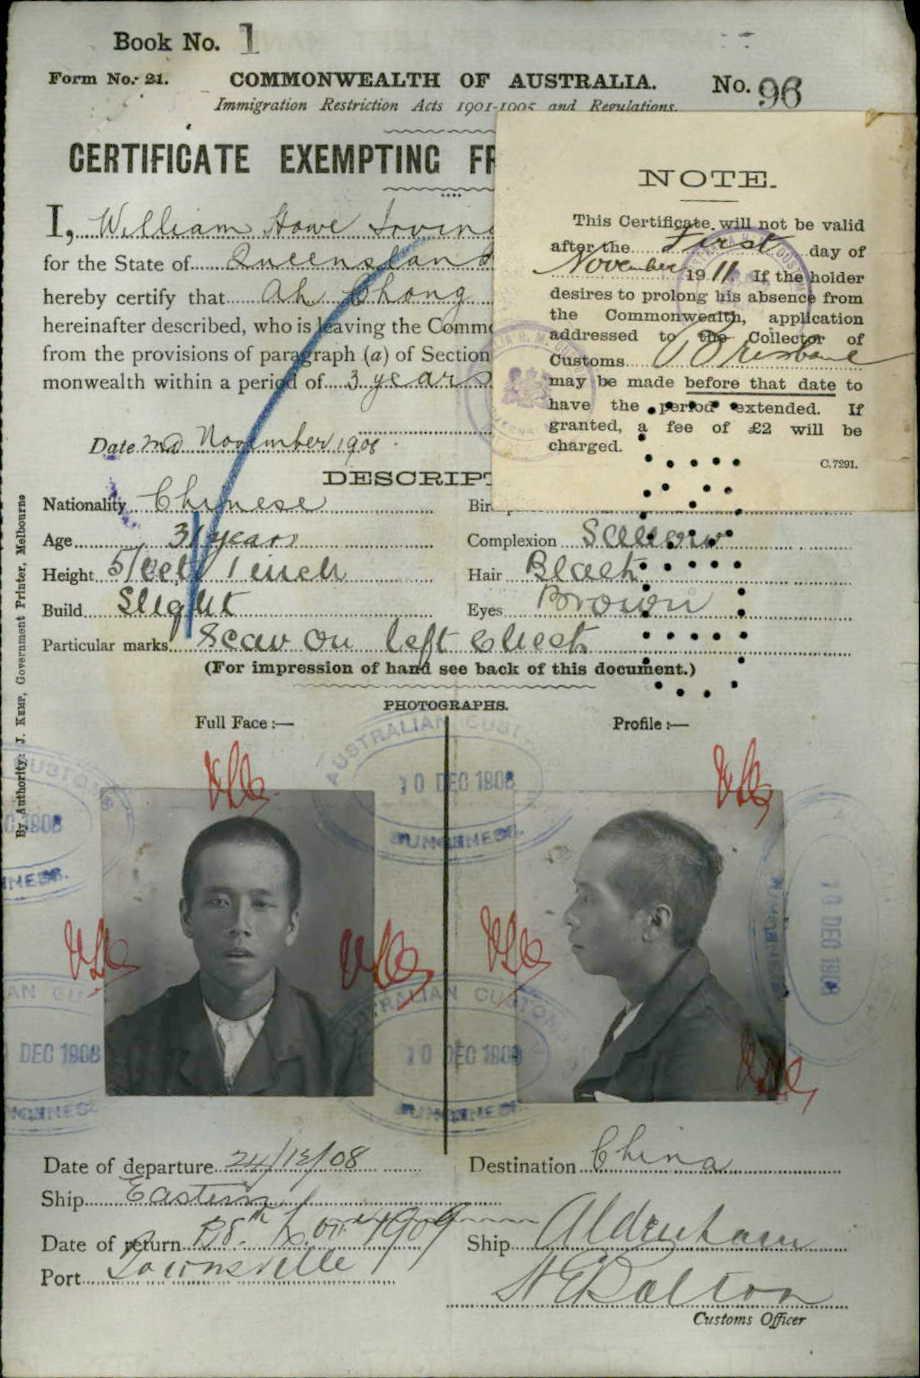 Book No. 1
Form No. 21.
COMMONWEALTH OF AUSTRALIA.
No. 96
Immigration Restriction Acts 1901-1905 and Regulations.
CERTIFICATE EXEMPTING FR
I, William Howe Irvine
for the State of Queensland
hereby certify that Ah Chong
hereinafter described, who is leaving the Commo
from the provisions of paragraph (a) of Section
monwealth within a period of 3 years
Date 2nd November 1908.
NOTE.
This Certificate will not be valid
after the First day of
November 1911. If the holder
desires to prolong his absence from
the Commonwealth, application
addressed to the Collector of
Customs Brisbane
may be made before that date to
have the period extended. If
granted, a fee of £2 will be
charged.
C.7291.
DESCRIPT
Nationality Chinese
Bir
Age 31 years
Complexion Sallow
Height 5 feet 1 inch
Hair Black
Build Slight
Eyes Brown
Particular marks Scar on left cheek
(For impression of hand see back of this document.)
By Authority: J. KEMP, Government Printer, Melbourne
PHOTOGRAPHS.
Full Face:—
Profile:—
AUSTRALIAN CUSTOMS
10 DEC 1908
DUNGENESS.
CUSTOMS
1908
NESS.
10 DEC 1908
AN CU
DEC 1908
DUNGENESS
AUSTRALIAN CUSTOMS
10 DEC 1908
DUNGENESS
Date of departure 24/12/08
Destination China
Ship Eastern
Date of return 1909
Ship Aldenham
Port Townsville
Customs Officer